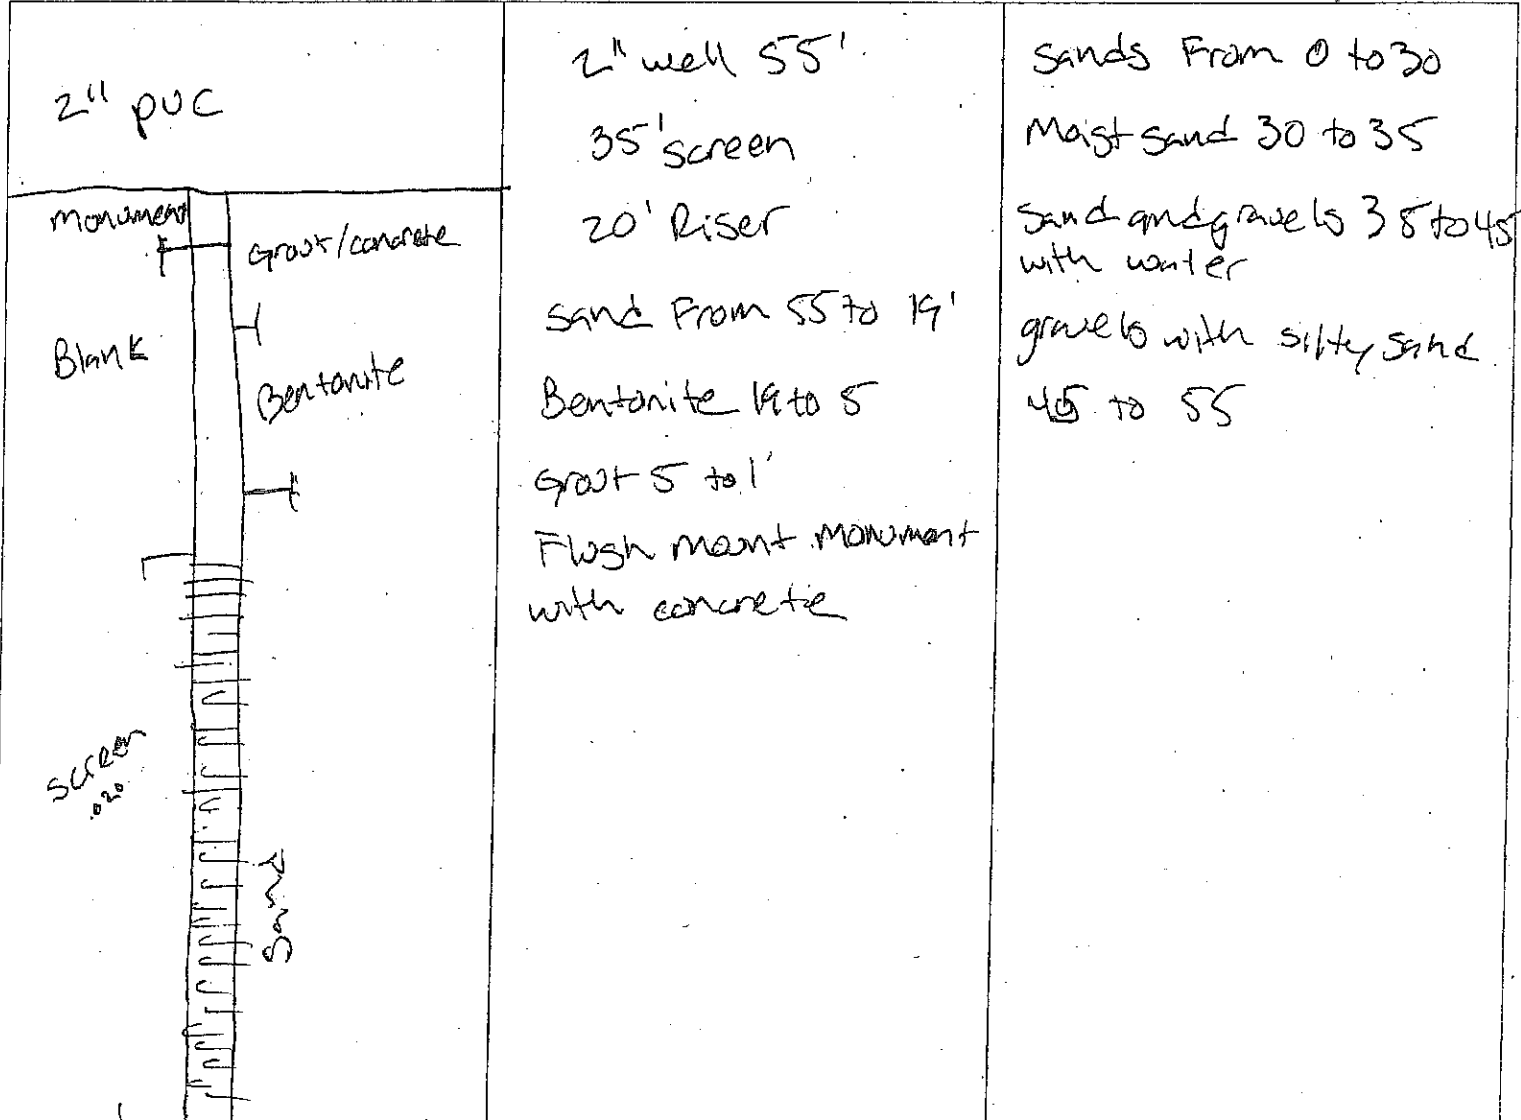 2" PVC
Monument
Grout/concrete
Blank
Bentonite
screen
.020
Sand
2" well 55'
35' screen
20' Riser
sand From 55 to 19'
Bentonite 19 to 5
Grout 5 to 1'
Flush mount Monument
with concrete
Sands From 0 to 30
Moist sand 30 to 35
Sand and gravels 35 to 45
with water
gravels with silty sand
45 to 55